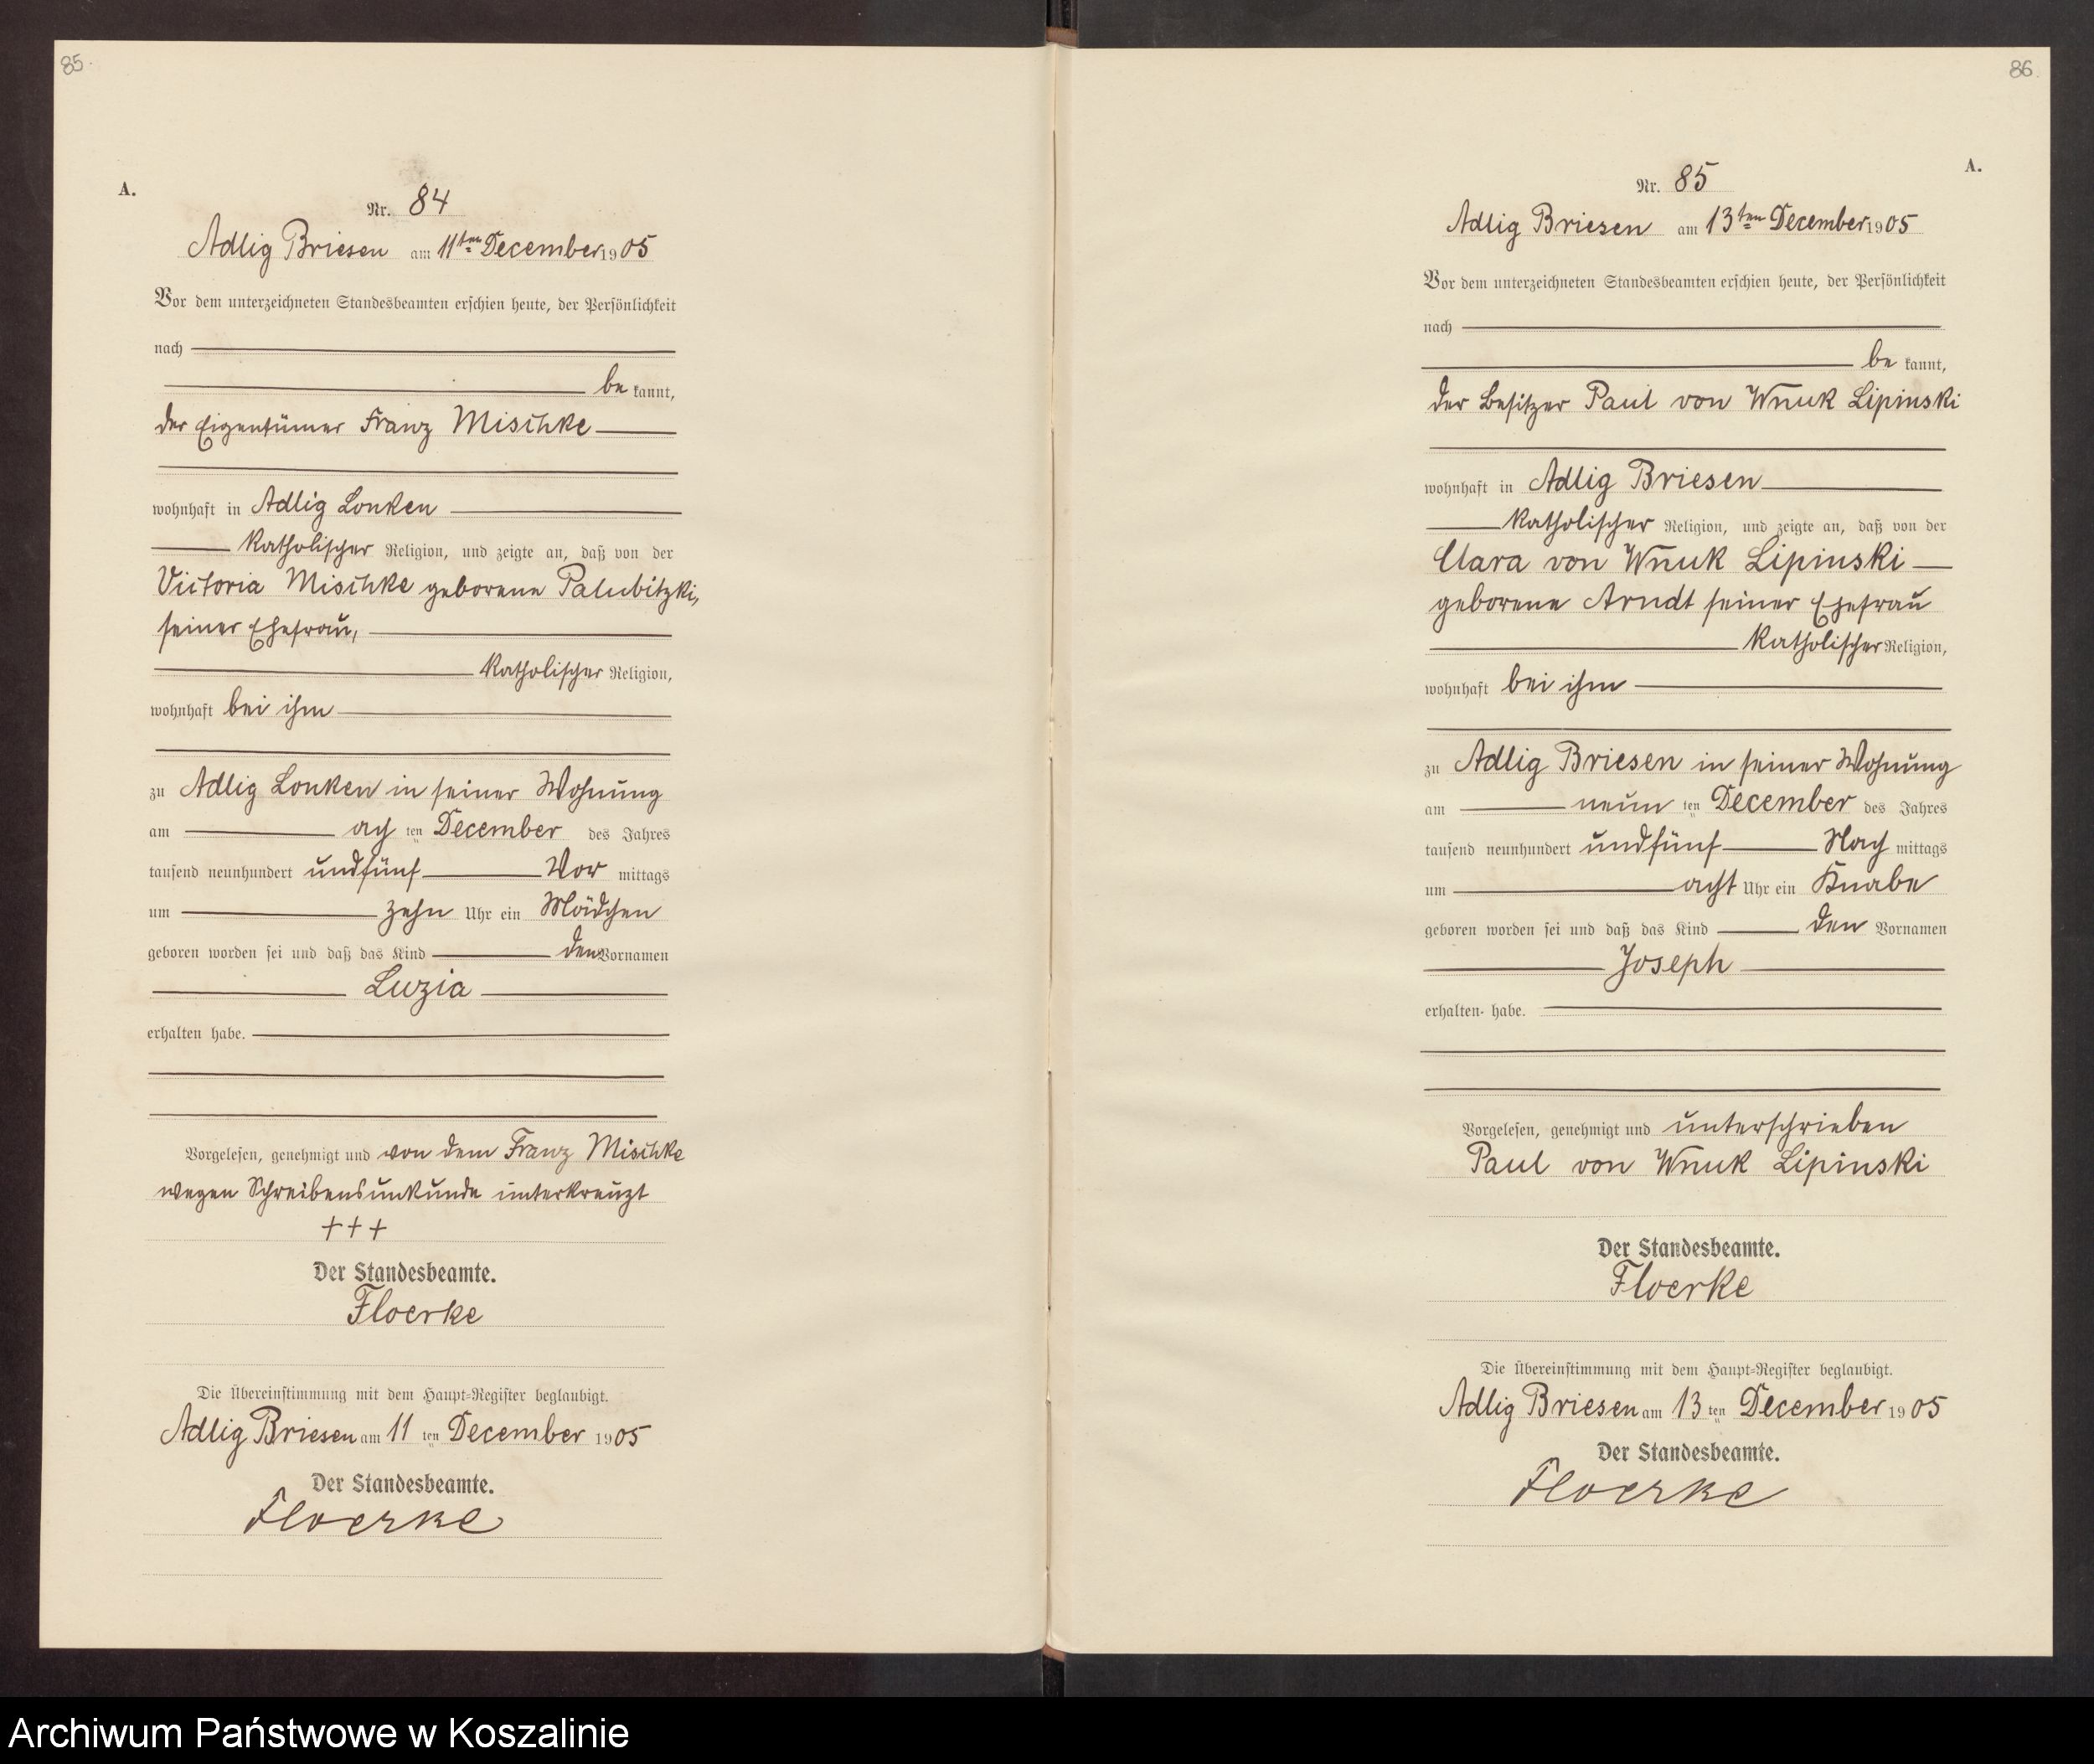 85.
A.
Nr. 84
Adlig Briesen am 11ten December 1905
Vor dem unterzeichneten Standesbeamten erschien heute, der Persönlichkeit
nach
be kannt,
der Eigentümer Franz Mischke
wohnhaft in Adlig Lonken
katholischer Religion, und zeigte an, daß von der
Victoria Mischke geborene Palubitzki,
seiner Ehefrau,
katholischer Religion,
wohnhaft bei ihm
zu Adlig Lonken in seiner Wohnung
am ach ten December des Jahres
tausend neunhundert undfünf Vor mittags
um zehn Uhr ein Mädchen
geboren worden sei und daß das Kind den Vornamen
Luzia
erhalten habe.
Vorgelesen, genehmigt und von dem Franz Mischke
wegen Schreibensunkunde unterkreuzt
+++
Der Standesbeamte.
Floerke
Die Übereinstimmung mit dem Haupt-Register beglaubigt.
Adlig Briesen am 11 ten December 1905
Der Standesbeamte.
Floerke
86.
A.
Nr. 85
Adlig Briesen am 13ten December 1905
Vor dem unterzeichneten Standesbeamten erschien heute, der Persönlichkeit
nach
be kannt,
der Besitzer Paul von Wnuk Lipinski
wohnhaft in Adlig Briesen
katholischer Religion, und zeigte an, daß von der
Clara von Wnuk Lipinski
geborene Arndt seiner Ehefrau
katholischer Religion,
wohnhaft bei ihm
zu Adlig Briesen in seiner Wohnung
am neun ten December des Jahres
tausend neunhundert undfünf Nach mittags
um acht Uhr ein Knabe
geboren worden sei und daß das Kind den Vornamen
Joseph
erhalten habe.
Vorgelesen, genehmigt und unterschrieben
Paul von Wnuk Lipinski
Der Standesbeamte.
Floerke
Die Übereinstimmung mit dem Haupt-Register beglaubigt.
Adlig Briesen am 13 ten December 1905
Der Standesbeamte.
Floerke
Archiwum Państwowe w Koszalinie